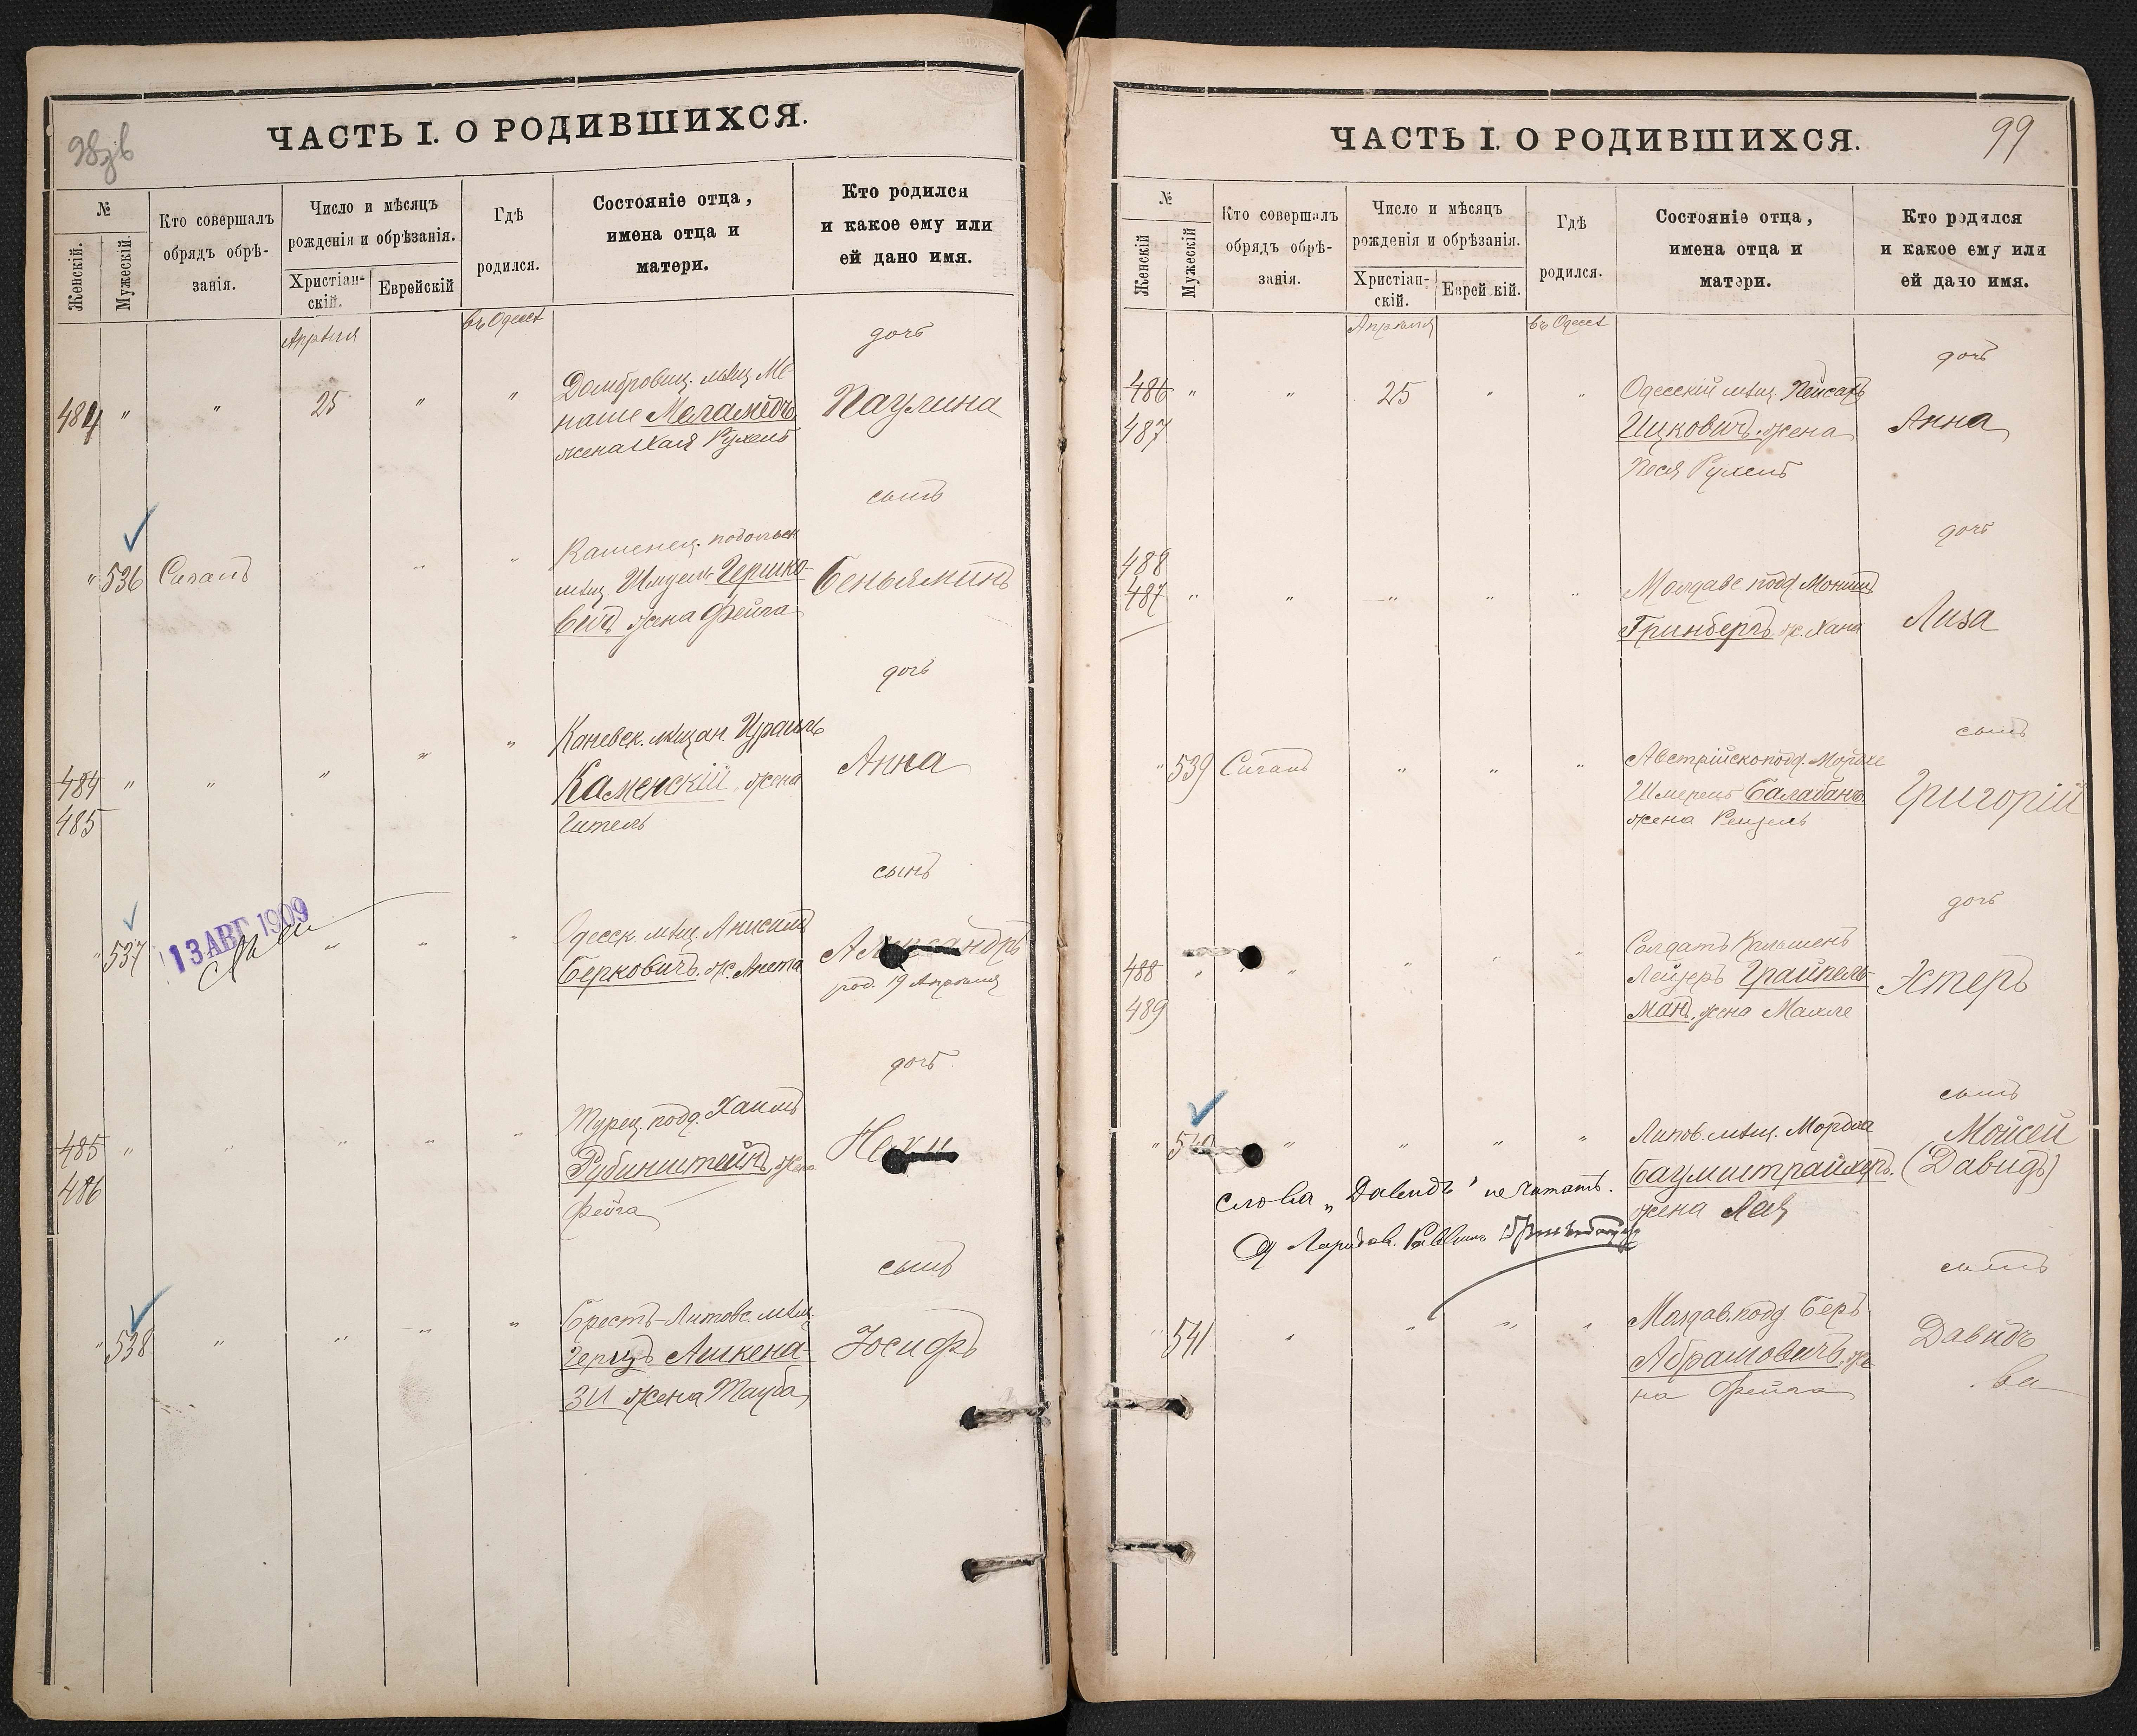 98зв
ЧАСТЬ I. О РОДИВШИХСЯ.
№
Женскій.
Мужескій
Кто совершалъ
обрядъ обрѣ-
занія.
Число и мѣсяцъ
рожденія и обрѣзанія.
Христіан-
скій.
Еврейскій
Гдѣ
родился.
Состояніе отца,
имена отца и
матери.
Кто родился
и какое ему или
ей дано имя.
Апрѣля
въ Одессѣ
дочь
484 " " 25 " "
Домбровиц. мѣщ. Ме-
наше Меламедъ
жена Хая Рухель
Паулина
сынъ
" 536 Сигалъ " "
Каменец. подольск
мѣщ. Шмуель Гершко-
вичъ жена Фейга
Беньяминъ
дочь
484 " " " " "
485
Каневск. мѣщан. Израиль
Каменскій, жена
Гитель
Анна
сынъ
" 537 " " "
13 АВГ 1909
Одесск. мѣщ. Анисимъ
Берковичъ. ж. Анета
Александръ
род. 19 Апрѣля
дочь
485 " " " " "
486
Турец. подд. Хаимъ
Рубинштейнъ, жена
Фейга
сынъ
" 538 " " " "
Брестъ-Литовс. мѣщ.
Герцъ Ашкена-
зи жена Тауба
Іосифъ
99
ЧАСТЬ I. О РОДИВШИХСЯ.
№
Женскій
Мужескій
Кто совершалъ
обрядъ обрѣ-
занія.
Число и мѣсяцъ
рожденія и обрѣзанія.
Христіан-
скій.
Еврей кій.
Гдѣ
родился.
Состояніе отца,
имена отца и
матери.
Кто родился
и какое ему или
ей дано имя.
Апрѣля
въ Одессѣ
дочь
486 " " 25 " "
487
Одесскій мѣщ. Пейсахъ
Ицковичъ. жена
Песя Рухель
Анна
дочь
488
487 " " " " "
Молдавс подд.
Гринбергъ. ж. Хана
Лиза
сынъ
" 539 Сигалъ " " "
Австрійскоподд. Мордхе
Шмерець Балабанъ.
жена Рейзель
Григорій
дочь
488 " " " " "
489
Солдатъ Кальменъ
Лейзеръ Грайпель-
манъ, жена Махле
Эстеръ
сынъ
" 540 " " " "
Липов. мѣщ. Мордха
Баумштрайхеръ.
жена Лея
Мойсей
(Давидъ)
слова „Давидъ" не читать.
Раввинъ
сынъ
" 541 " " " "
Молдав. подд. Беръ
Абрамовичъ. же-
на Фейга
Давидъ